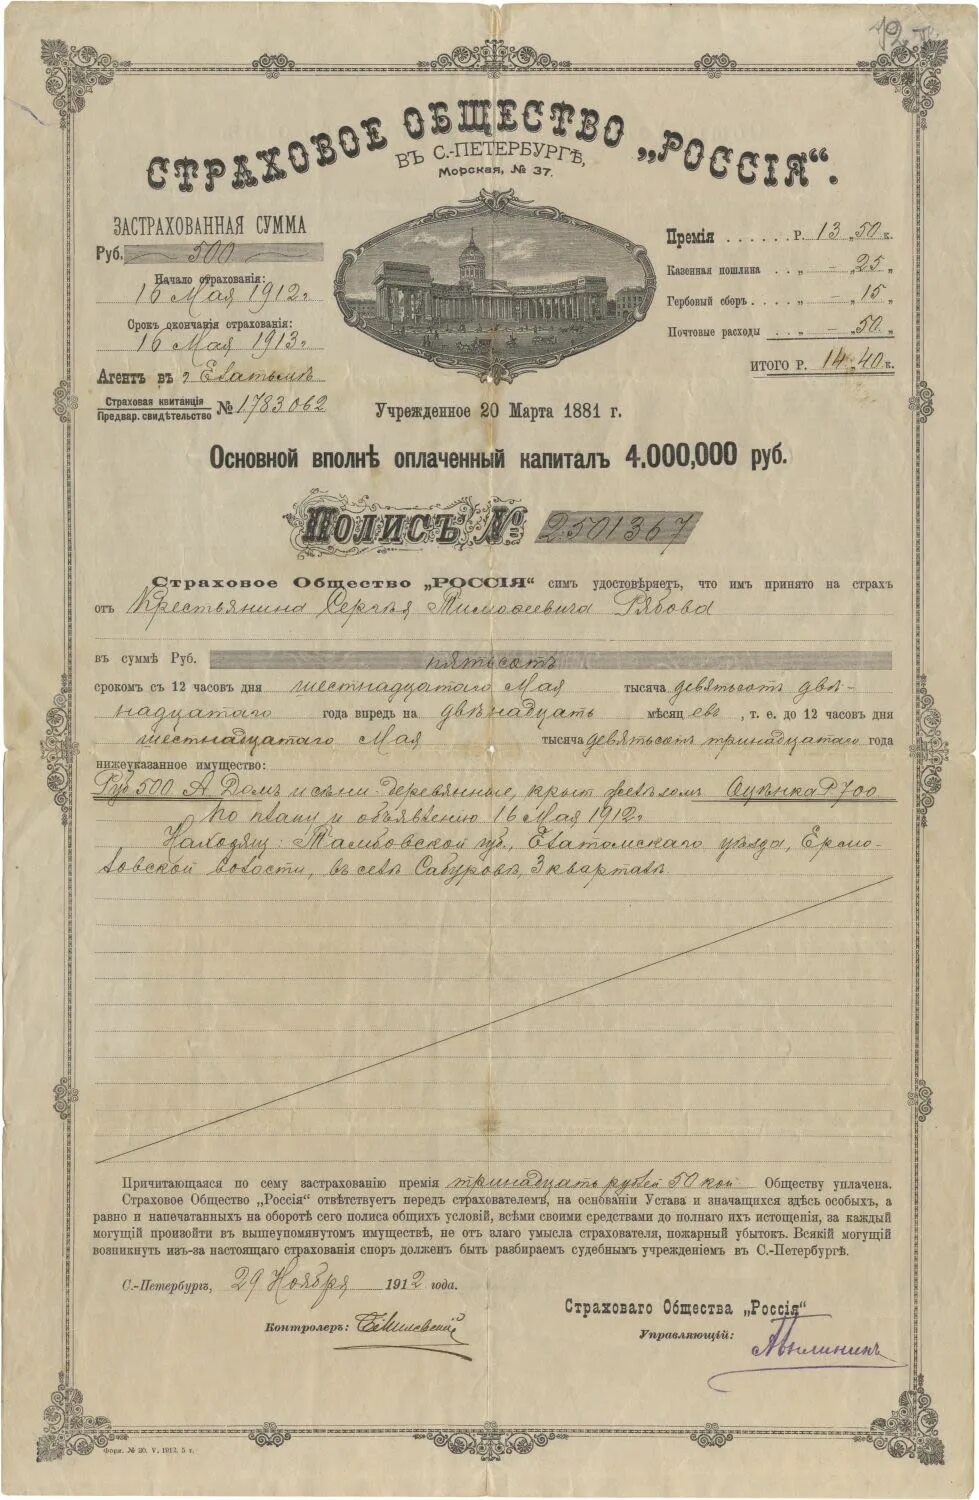 СТРАХОВОЕ ОБЩЕСТВО „РОССІЯ“.
ВЪ С.-ПЕТЕРБУРГѢ,
Морская, № 37.
ЗАСТРАХОВАННАЯ СУММА
Руб. 500
Начало страхованія:
16 Мая 1912 г
Срокъ окончанія страхованія:
16 Мая 1913 г
Агентъ въ г Елатьмѣ
Страховая квитанція
Предвар. свидѣтельство № 1783062
Премія . . . . . . Р. 13 „50 к.
Казенная пошлина . . „ – „25 „
Гербовый сборъ . . . . „ – „15 „
Почтовые расходы . . „ – „50 „
ИТОГО Р. 14 „40 к.
Учрежденное 20 Марта 1881 г.
Основной вполнѣ оплаченный капиталъ 4.000,000 руб.
Полисъ № 2501367
Страховое Общество „РОССІЯ“ симъ удостовѣряетъ, что имъ принято на страхъ
отъ Крестьянина Сергѣя Тимоѳеевича Рябова
въ суммѣ Руб. пятьсотъ
срокомъ съ 12 часовъ дня шестнадцатаго Мая тысяча девятьсотъ двѣ-
надцатаго года впредь на двѣнадцать мѣсяц евъ , т. е. до 12 часовъ дня
шестнадцатаго Мая тысяча девятьсотъ тринадцатаго года
нижеуказанное имущество:
Руб 500 А Домъ и сѣни деревянные, крыт желѣзомъ Оцѣнка Р 700
По плану и объявленію 16 Мая 1912 г
Находящ: Тамбовской губ., Елатомскаго уѣзда, Ермо-
ловской волости, въ селѣ Сабуровѣ, 3 кварталѣ
Причитающаяся по сему застрахованію премія тринадцать рублей 50 коп Обществу уплачена.
Страховое Общество „Россія“ отвѣтствуетъ передъ страхователемъ, на основаніи Устава и значащихся здѣсь особыхъ, а
равно и напечатанныхъ на оборотѣ сего полиса общихъ условій, всѣми своими средствами до полнаго ихъ истощенія, за каждый
могущій произойти въ вышеупомянутомъ имуществѣ, не отъ злаго умысла страхователя, пожарный убытокъ. Всякій могущій
возникнуть изъ-за настоящаго страхованія споръ долженъ быть разбираемъ судебнымъ учрежденіемъ въ С.-Петербургѣ.
С.-Петербургъ, 29 Ноября 1912 года.
Страховаго Общества „Россія“
Контролеръ:
Управляющій:
Форм. № 20. V. 1912. 5 т.